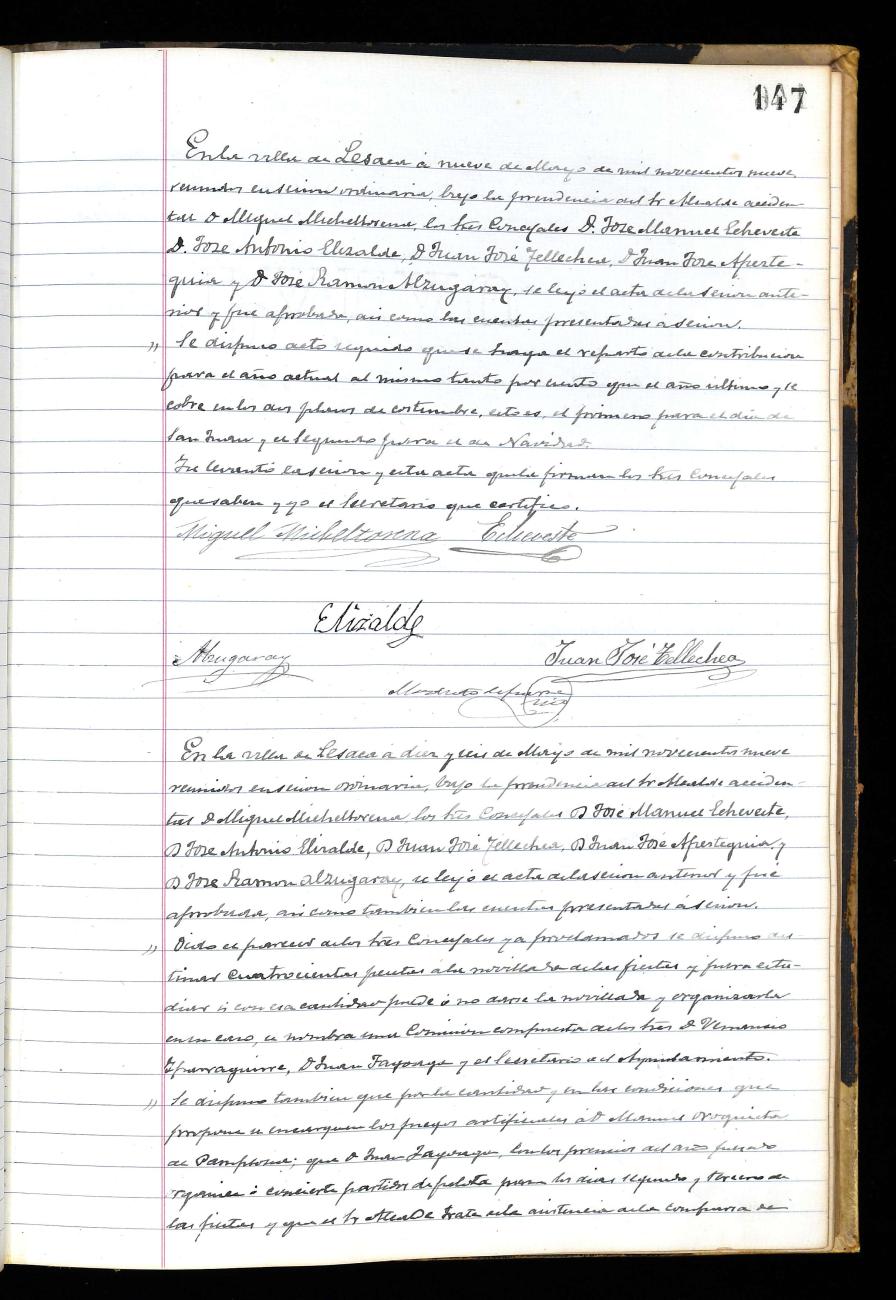 147
En la villa de Lesaca á nueve de Mayo de mil novecientos nueve,
reunidos en sesion ordinaria, bajo la presidencia del Sr Alcalde acciden-
tal D Miguel Micheltorena, los Sres Concejales D. Jose Manuel Echeveste
D. Jose Antonio Elizalde, D Juan José Tellechea, D Juan Jose Apeste-
guia y D José Ramon Alzugaray, se leyó el acta de la sesion ante-
rior y fue aprobada, asi como las cuentas presentadas á sesion.
" Se dispuso acto seguido que se haga el reparto de la contribucion
para el año actual al mismo tanto por ciento que el año ultimo y se
cobre en los dos plazos de costumbre, esto es, el primero para el dia de
San Juan y el segundo para el de Navidad.
Se levantó la sesion y esta acta que la firman los Sres Concejales
que saben y yo el Secretario que certifico.
Miguel Micheltorena Echeveste
Elizalde
Alzugaray Juan José Tellechea
En la villa de Lesaca á diez y seis de Mayo de mil novecientos nueve
reunidos en sesion ordinaria, bajo la presidencia del Sr Alcalde acciden-
tal D Miguel Micheltorena los Sres Concejales D José Manuel Echeveste,
D Jose Antonio Elizalde, D Juan José Tellechea, D Juan José Apesteguia, y
D Jose Ramon Alzugaray, se leyó el acta de la sesion anterior y fué
aprobada, asi como tambien las cuentas presentadas á sesion.
" Oido el parecer de los Sres Concejales ya proclamados se dispuso des-
tinar cuatrocientas pesetas á la novillada de las fiestas y para estu-
diar si con esa cantidad puede ó no darse la novillada y organizarla
en su caso, se nombra una Comision compuesta de los Sres D Venancio
Yparraguirre, D Juan Fagoaga y el Secretario del Ayuntamiento.
" Se dispuso tambien que por la cantidad y en las condiciones que
propone se encarguen los fuegos artificiales á D Manuel Oroquieta
de Pamplona; que D Juan Fagoaga, con los premios del año pasado
organice ó concierte partidos de pelota para los dias segundo y tercero de
las fiestas y que el Sr Alcalde trate de la asistencia de la comparsa de